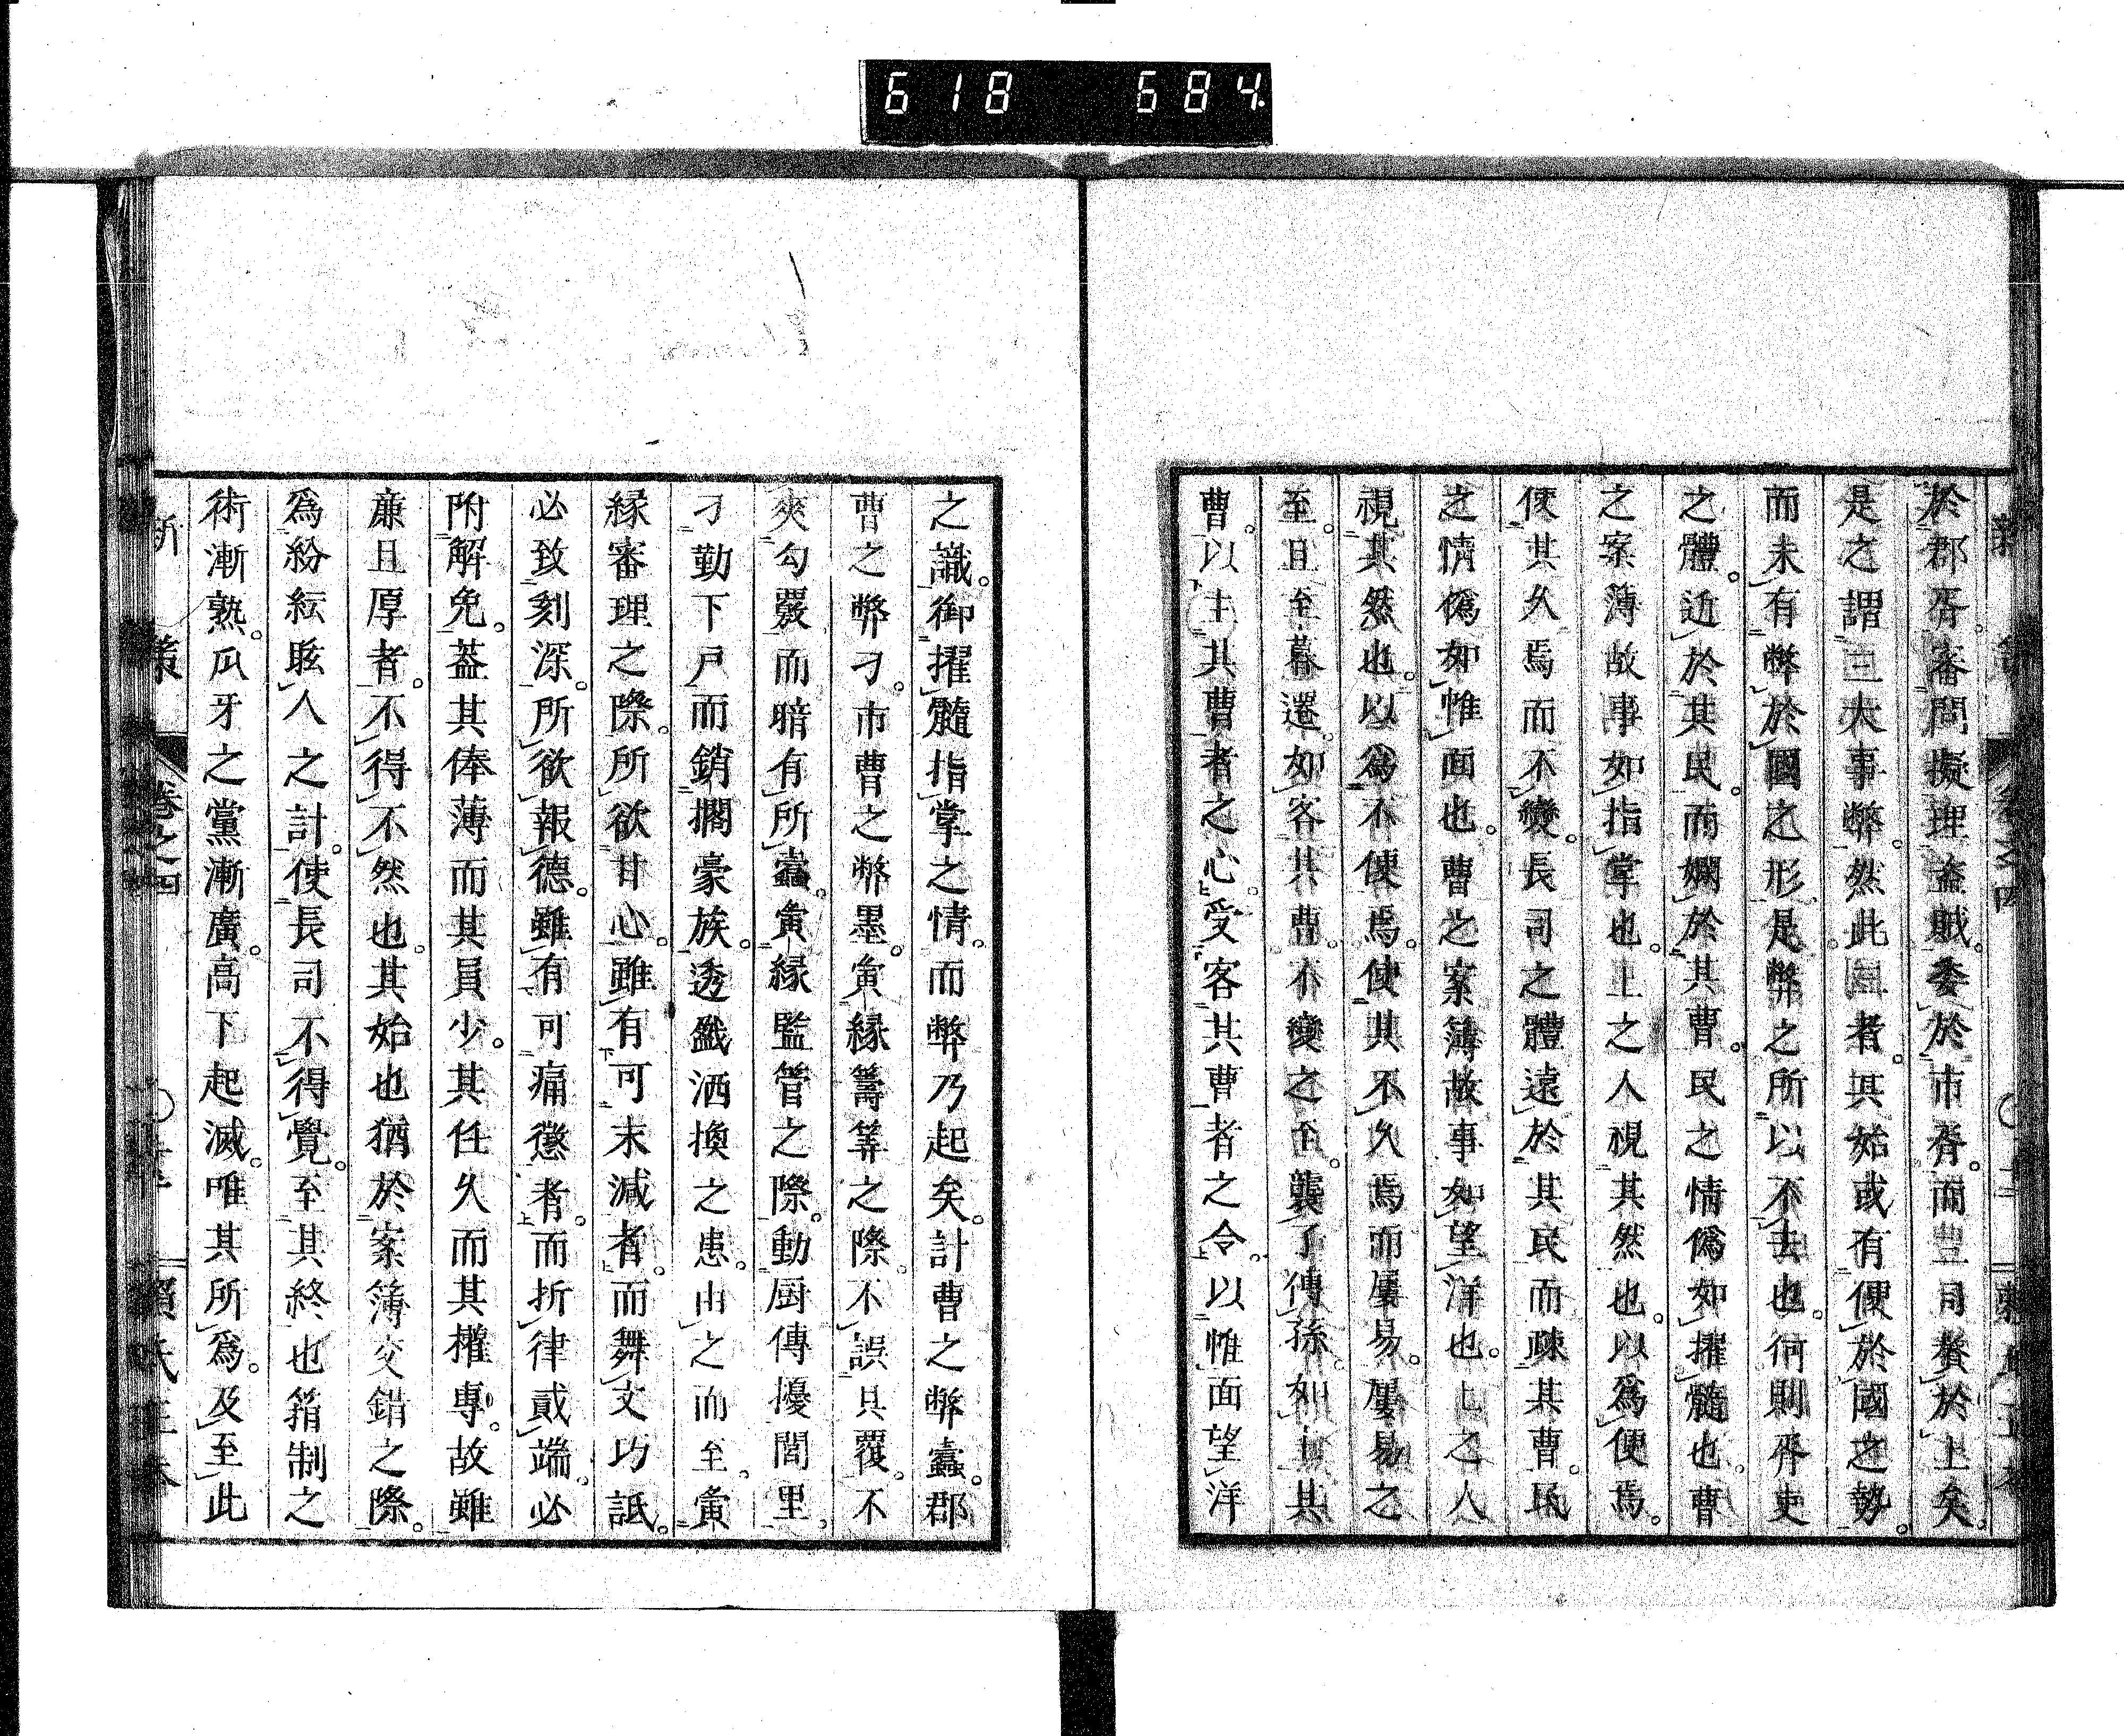 618 684
於郡胥。審問擬理盜賊。委於市胥。而豊司贅於上矣。
是之謂三大事弊。然此三者。其始或有便於國之勢。
而未有弊於國之形。是弊之所以不去也。何則胥吏
之體。近於其民。而嫻於其曹。民之情僞如擢髓也。曹
之案簿故事如指掌也。上之人視其然也。以爲便焉。
使其久焉而不變。長司之體遠於其民而疎其曹。民
之情僞如惟面也。曹之案簿故事如望洋也。上之人
視其然也。以爲不便焉。使其不久焉而屢易。屢易之
至。旦至暮還。如客其曹。不變之至。襲了傳孫。如主其
曹。以主其曹者之心。受客其曹者之令。以惟面望洋
之識。御擢髓指掌之情。而弊乃起矣。計曹之弊蠹。郡
曹之弊刁。市曹之弊墨。夤緣籌筭之際。不誤其覆。不
爽勾覈而暗有所蠹。夤緣監管之際。動厨傳擾閭里。
刁勤下戸而銷擱豪族。透鐬洒換之患。由之而至。夤
緣審理之際。所欲甘心。雖有可末減者。而舞文巧詆。
必致刻深。所欲報德。雖有可痛懲者。而折律貳端。必
附解免。葢其俸薄而其員少。其任久而其權專。故雖
廉且厚者。不得不然也。其始也猶於案簿交錯之際。
爲紛紜眩人之計。使長司不得覺。至其終也箝制之
術漸熟。瓜牙之黨漸廣。高下起滅。唯其所爲。及至此
新策 卷之四 賴氏正本